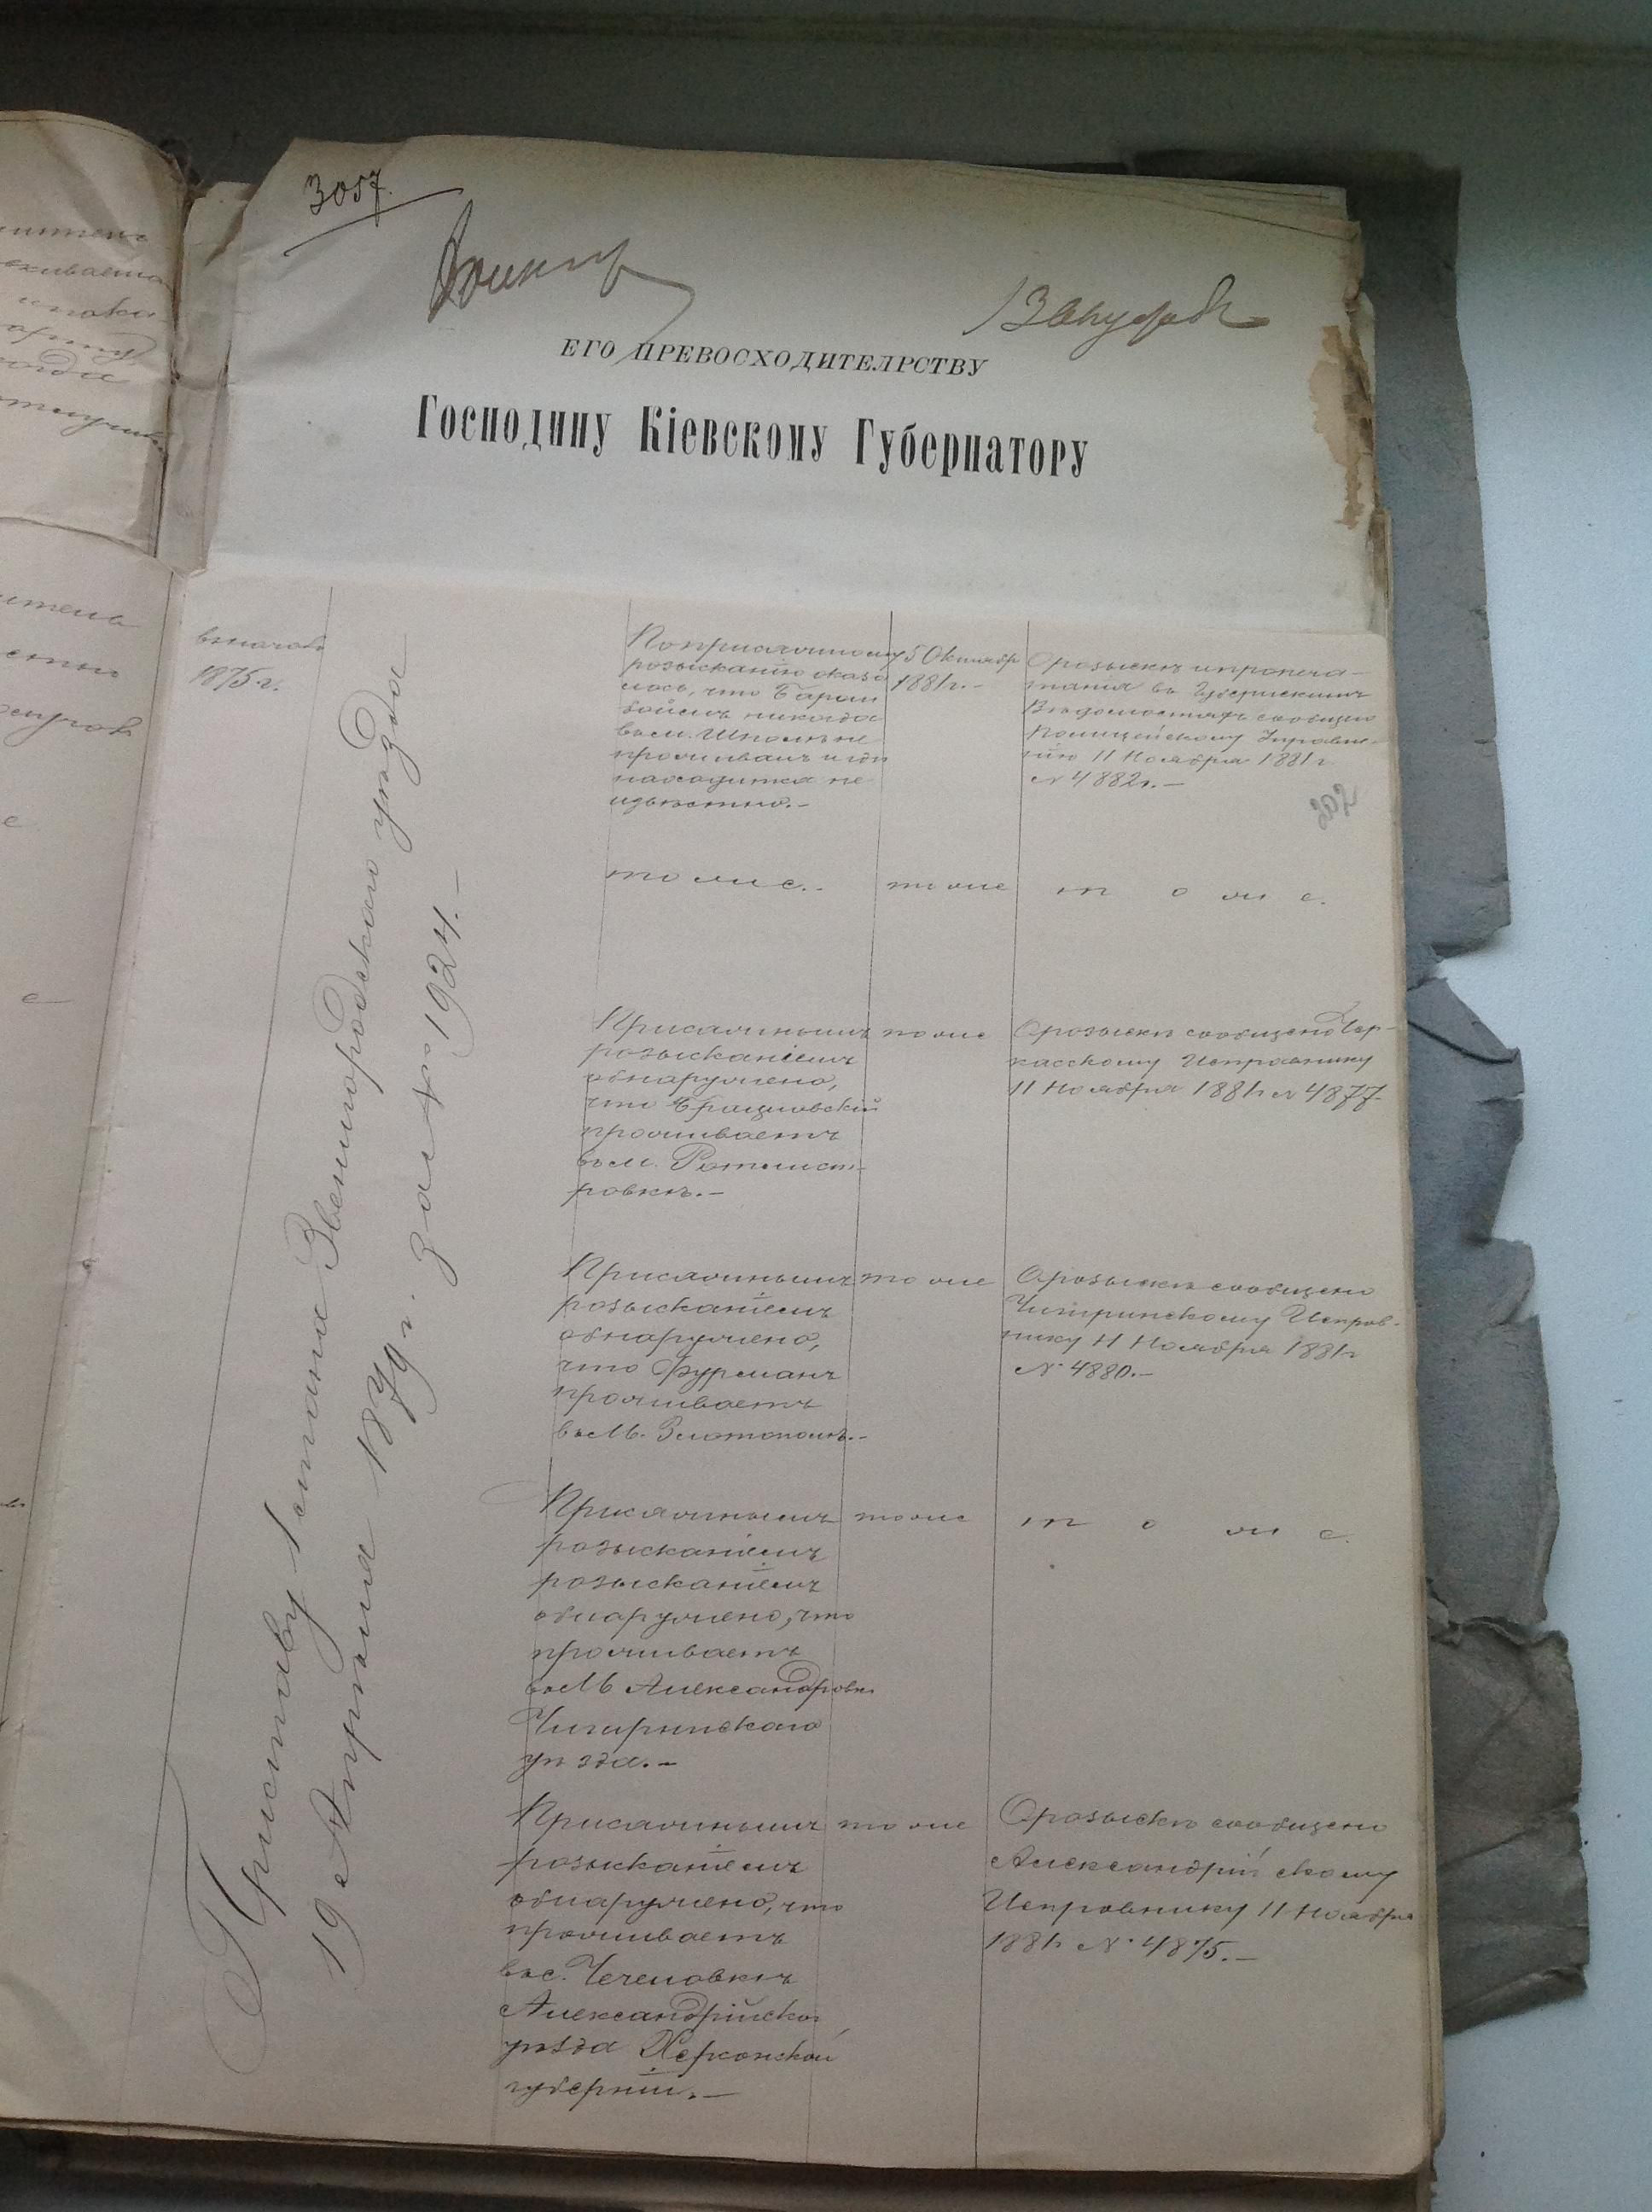 3057.
ЕГО ПРЕВОСХОДИТЕЛРСТВУ
Господину Кіевскому Губернатору
1875 г.
Приставу 1 стана Звенигородскаго уѣзда
19 Апрѣля 1879 г. за № 1924.—
По присяжному
розысканію оказа
лось, что Баром
бойемъ никогда
въ м. Шполѣ не
проживалъ и гдѣ
находится не
извѣстно.—
5 Октября
1881 г.—
О розыскѣ и пропеча-
танія въ Губернскихъ
Вѣдомостяхъ сообщено
Полицейскому Управле-
нію 11 Ноября 1881 г
№ 4882.—
тоже.
тоже
тоже.
Присяжнымъ
розысканіемъ
обнаружено,
что Брацловскій
проживаетъ
въ м. Ротмист-
ровкѣ.—
тоже
О розыскѣ сообщено Чер-
касскому Исправнику
11 Ноября 1881 г № 4877
Присяжнымъ
розысканіемъ
обнаружено,
что Фурманъ
проживаетъ
въ М. Златополѣ.—
тоже
О розыскѣ сообщено
Чигиринскому Исправ-
нику 11 Ноября 1881 г
№ 4880.—
Присяжнымъ
розысканіемъ
розысканіемъ
обнаружено, что
проживаетъ
въ М Александровк
Чигиринскаго
уѣзда.—
тоже
тоже
Присяжнымъ
розысканіемъ
обнаружено, что
проживаетъ
въ с. Чечеловкѣ
Александрійског
уѣзда Херсонской
губерніи.—
тоже
О розыскѣ сообщено
Александрійскому
Исправнику 11 Ноября
1881 г № 4875.—